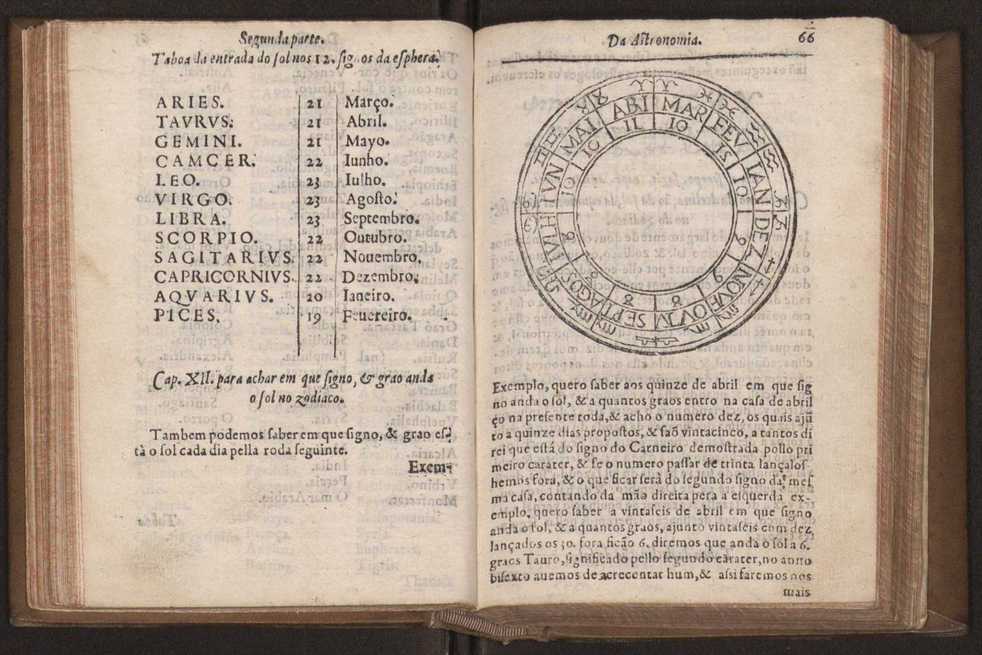 Segunda parte.
Taboa da entrada do sol nos 12. signos da esphera.
ARIES. 21 Março.
TAVRVS. 21 Abril.
GEMINI. 21 Mayo.
CAMCER. 22 Iunho.
LEO. 23 Iulho.
VIRGO. 23 Agosto.
LIBRA. 23 Septembro.
SCORPIO. 22 Outubro.
SAGITARIVS. 22 Nouembro.
CAPRICORNIVS. 22 Dezembro.
AQVARIVS. 20 Ianeiro.
PICES. 19 Feuereiro.
Cap. XII. para achar em que signo, & grao anda
o sol no zodiaco.
Tambem podemos saber em que signo, & grao es-
tà o sol cada dia pella roda seguinte.
Exem-
Da Astronomia. 66
ABI MAR FEV IAN DEZ NOVE OVM SEPT AGOS IVLH IVN MAI
Exemplo, quero saber aos quinze de abril em que sig
no anda o sol, & a quantos graos entro na casa de abril
ço na presente roda, & acho o numero dez, os quais ajũ
to a quinze dias propostos, & saõ vintacinco, a tantos di
rei que està do signo do Carneiro demostrada pollo pri
meiro carater, & se o numero passar de trinta lançalos
hemos fora, & o que ficar serà do segundo signo da mes
ma casa, contando da mão direita pera a esquerda ex-
emplo, quero saber a vintaseis de abril em que signo
anda o sol, & a quantos graos, ajunto vintaseis com dez
lançados os 30. fora ficão 6. diremos que anda o sol a 6.
graos Tauro, significado pello segundo carater, no anno
bisexto auemos de acrecentar hum, & assi faremos nos
mais